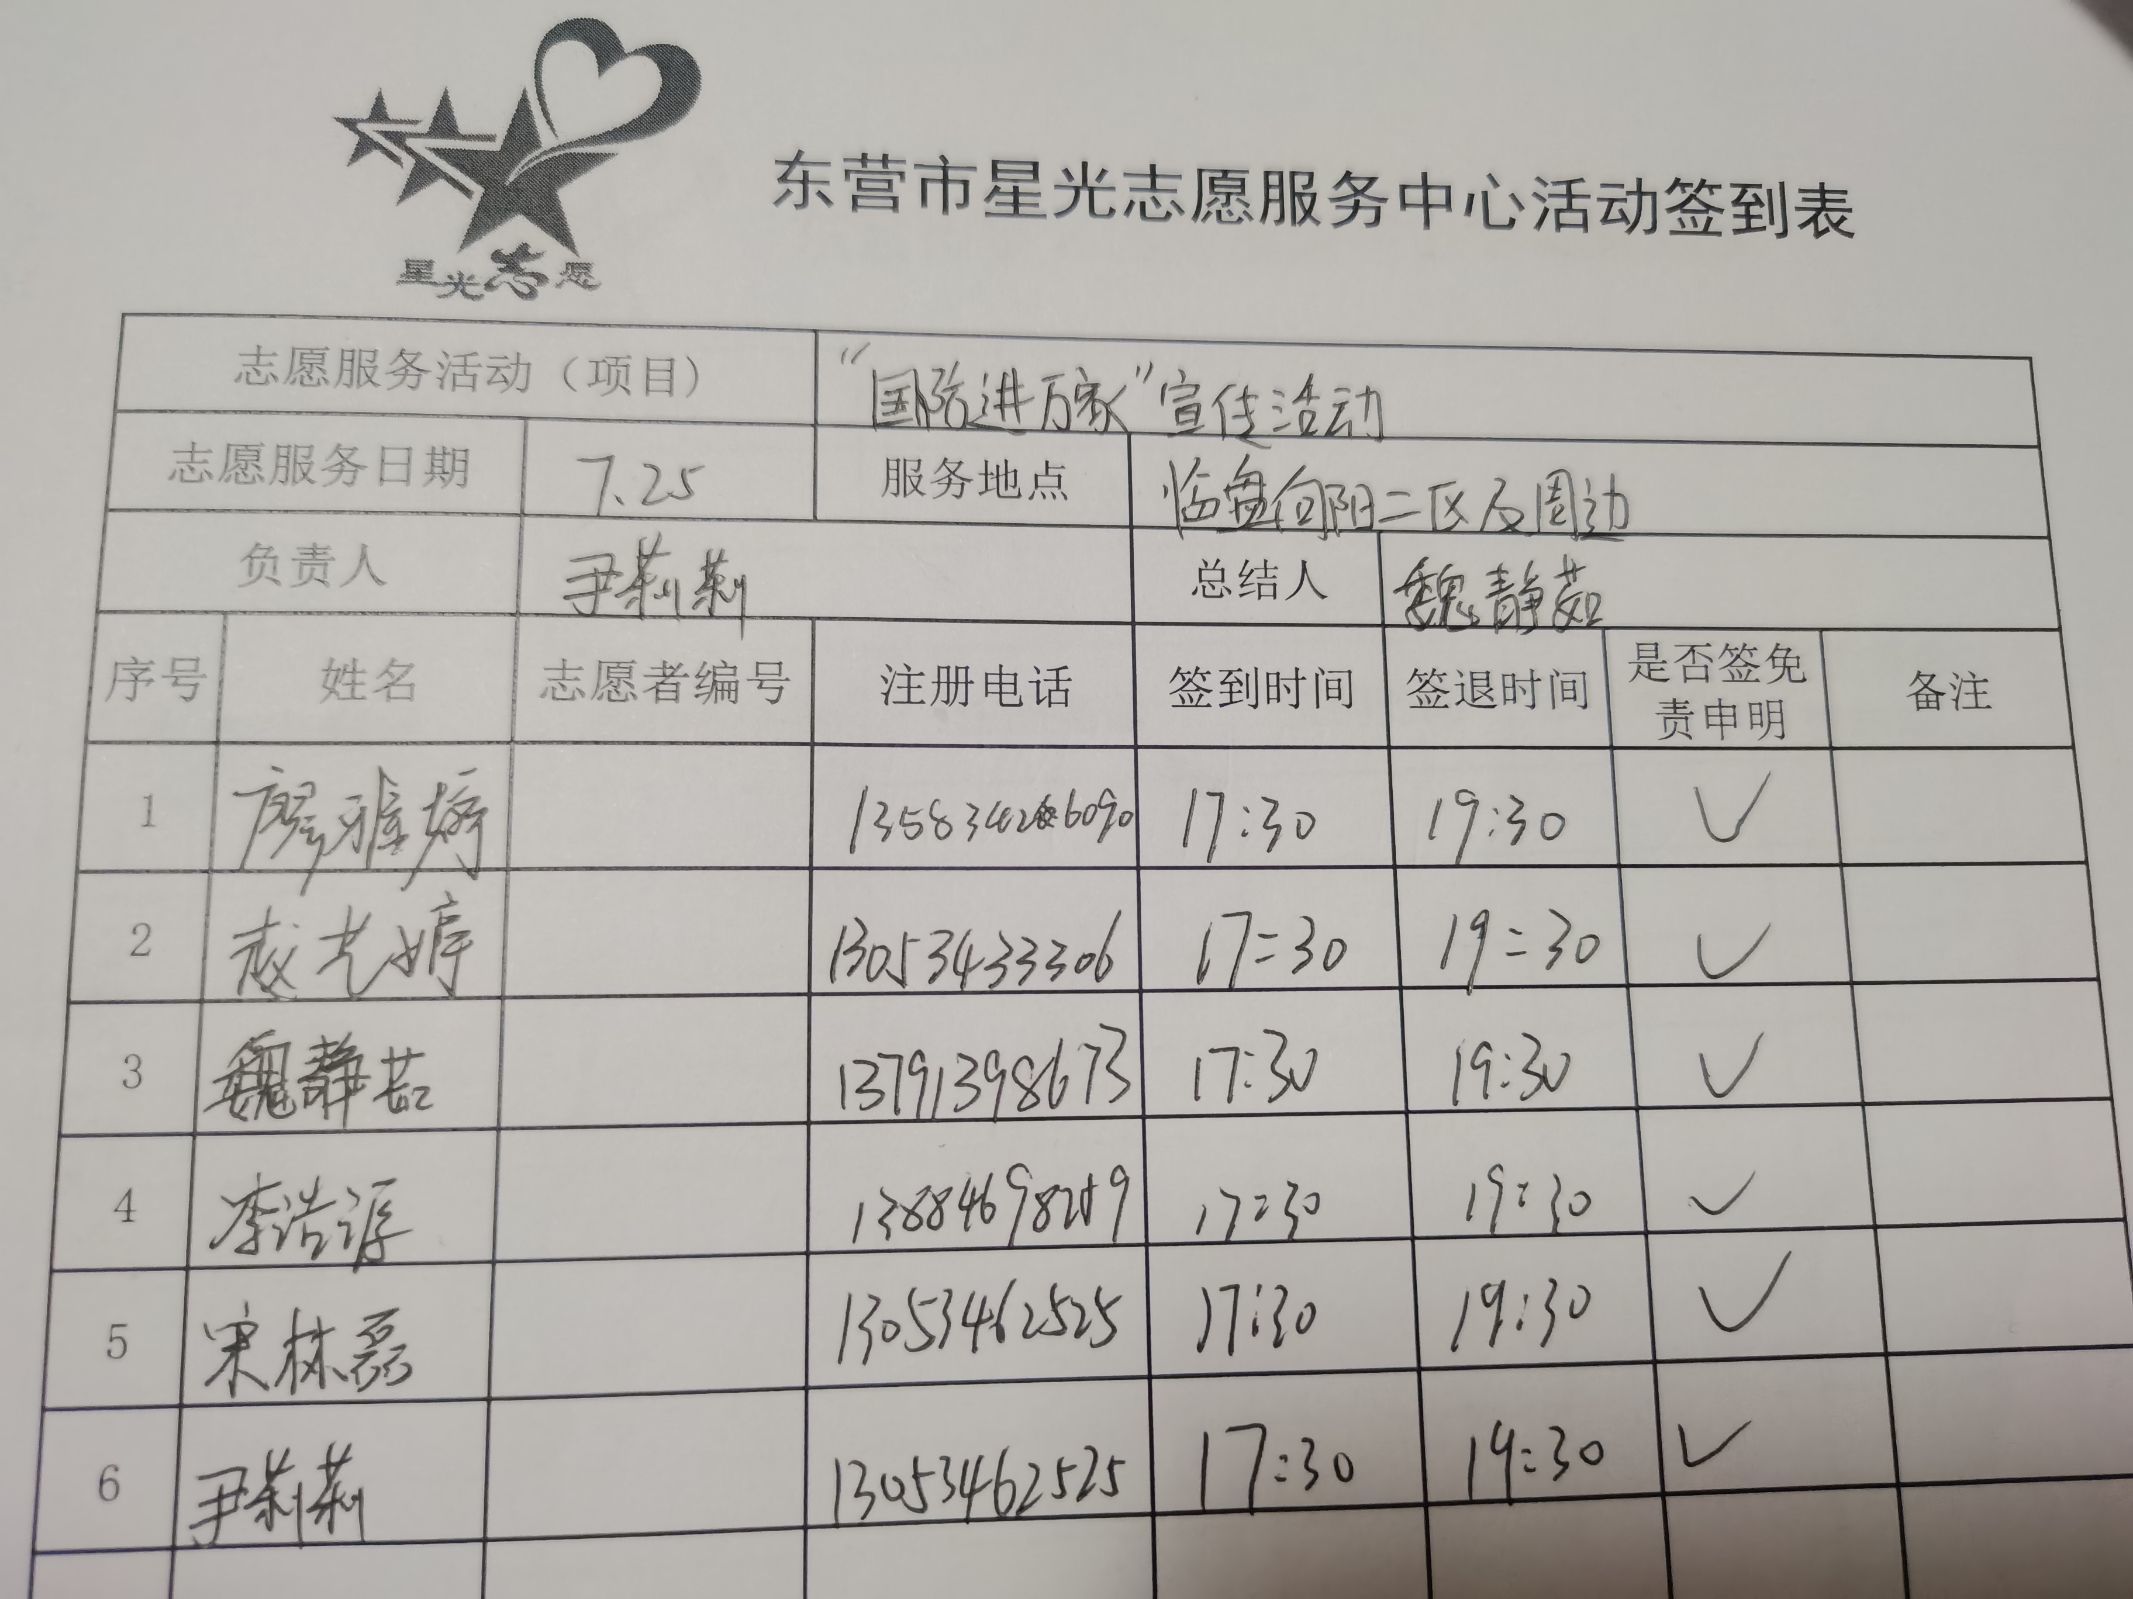 东营市星光志愿服务中心活动签到表
星光志愿
志愿服务活动（项目） “国防进万家”宣传活动
志愿服务日期 7.25 服务地点 临盘向阳二区及周边
负责人 尹莉莉 总结人 魏静茹
序号 姓名 志愿者编号 注册电话 签到时间 签退时间 是否签免责申明 备注
1 廖雅婷 17:30 19:30 ✓
2 赵艺婷 13053433306 17:30 19:30 ✓
3 魏静茹 13791398673 17:30 19:30 ✓
4 李浩淳 17:30 19:30 ✓
5 宋林磊 13053462525 17:30 19:30 ✓
6 尹莉莉 13053462525 17:30 19:30 ✓